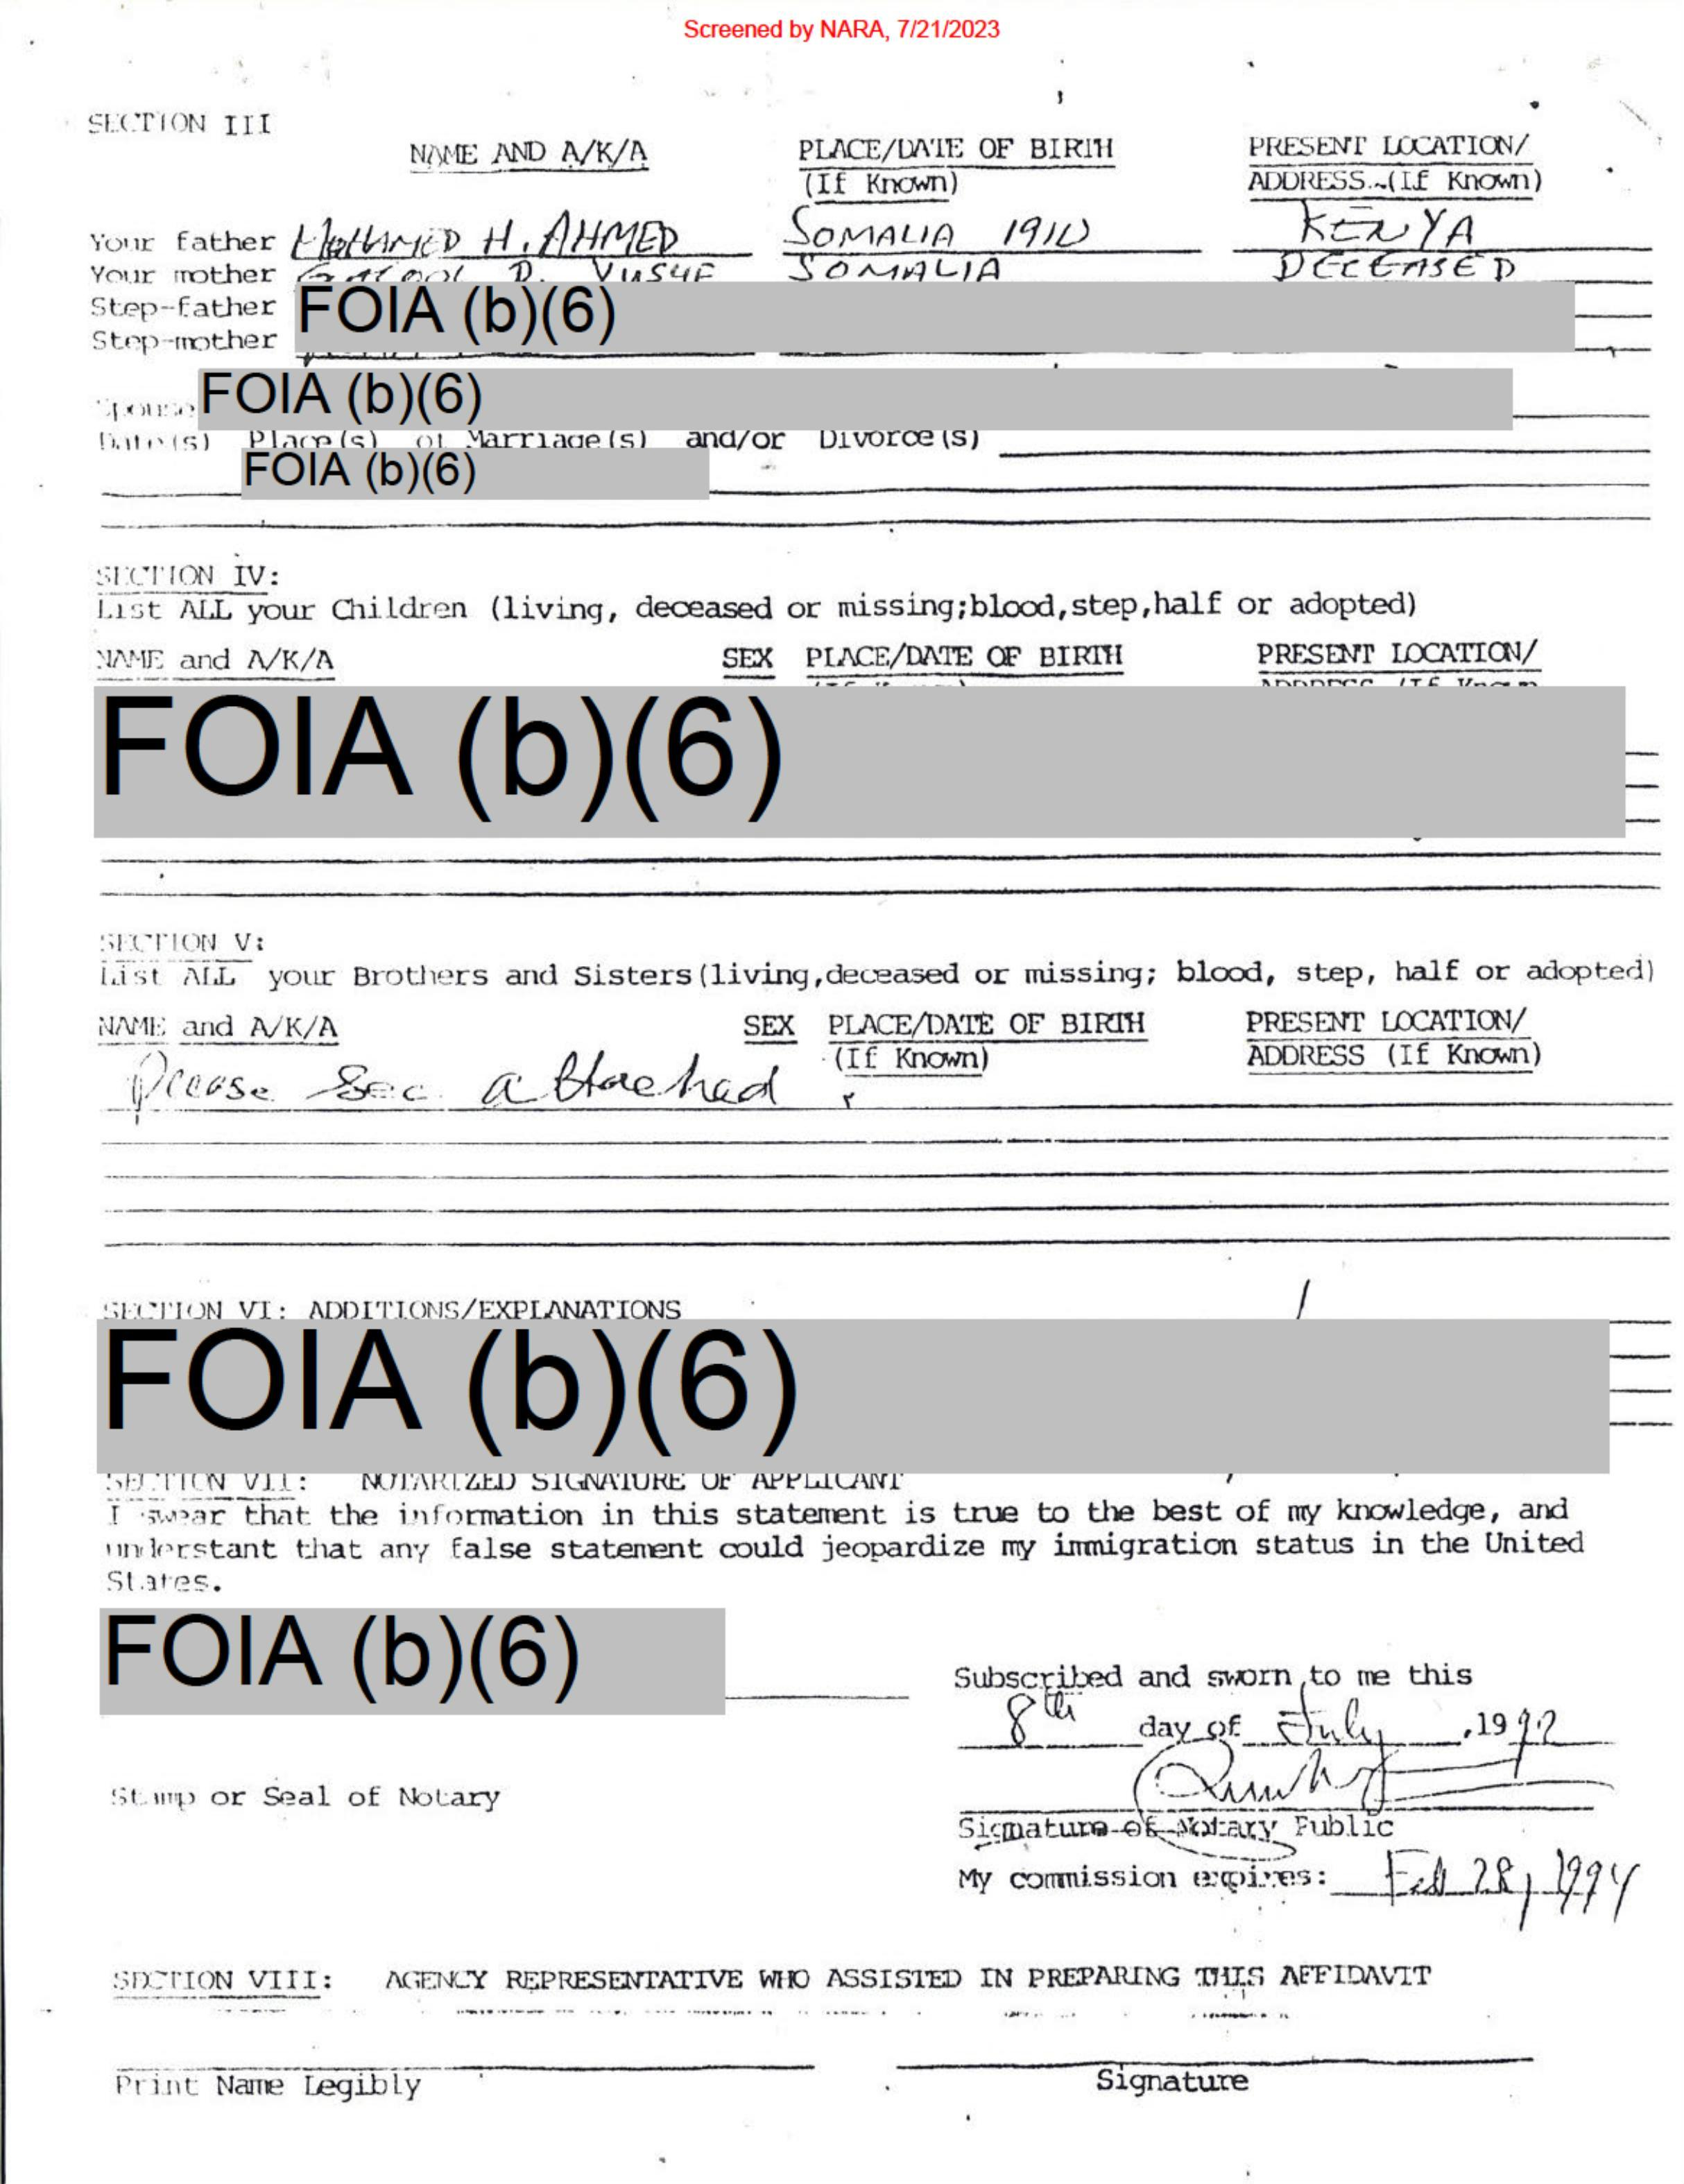 Screened by NARA, 7/21/2023
SECTION III
NAME AND A/K/A PLACE/DATE OF BIRTH PRESENT LOCATION/
(If Known) ADDRESS (If Known)
Your father MOHAMED H. AHMED SOMALIA 1910 KENYA
Your mother D. YUSUF SOMALIA DECEASED
Step-father FOIA (b)(6)
Step-mother
Spouse FOIA (b)(6)
Date(s) Place(s) of Marriage(s) and/or Divorce(s)
FOIA (b)(6)
SECTION IV:
List ALL your Children (living, deceased or missing;blood,step,half or adopted)
NAME and A/K/A SEX PLACE/DATE OF BIRTH PRESENT LOCATION/
ADDRESS (If Known
FOIA (b)(6)
SECTION V:
List ALL your Brothers and Sisters(living,deceased or missing; blood, step, half or adopted)
NAME and A/K/A SEX PLACE/DATE OF BIRTH PRESENT LOCATION/
(If Known) ADDRESS (If Known)
Please See attached
SECTION VI: ADDITIONS/EXPLANATIONS
FOIA (b)(6)
SECTION VII: NOTARIZED SIGNATURE OF APPLICANT
I swear that the information in this statement is true to the best of my knowledge, and
understant that any false statement could jeopardize my immigration status in the United
States.
FOIA (b)(6)
Subscribed and sworn to me this
8th day of July ,1992
Stamp or Seal of Notary
Signature of Notary Public
My commission expires: Feb 28, 1994
SECTION VIII: AGENCY REPRESENTATIVE WHO ASSISTED IN PREPARING THIS AFFIDAVIT
Print Name Legibly Signature